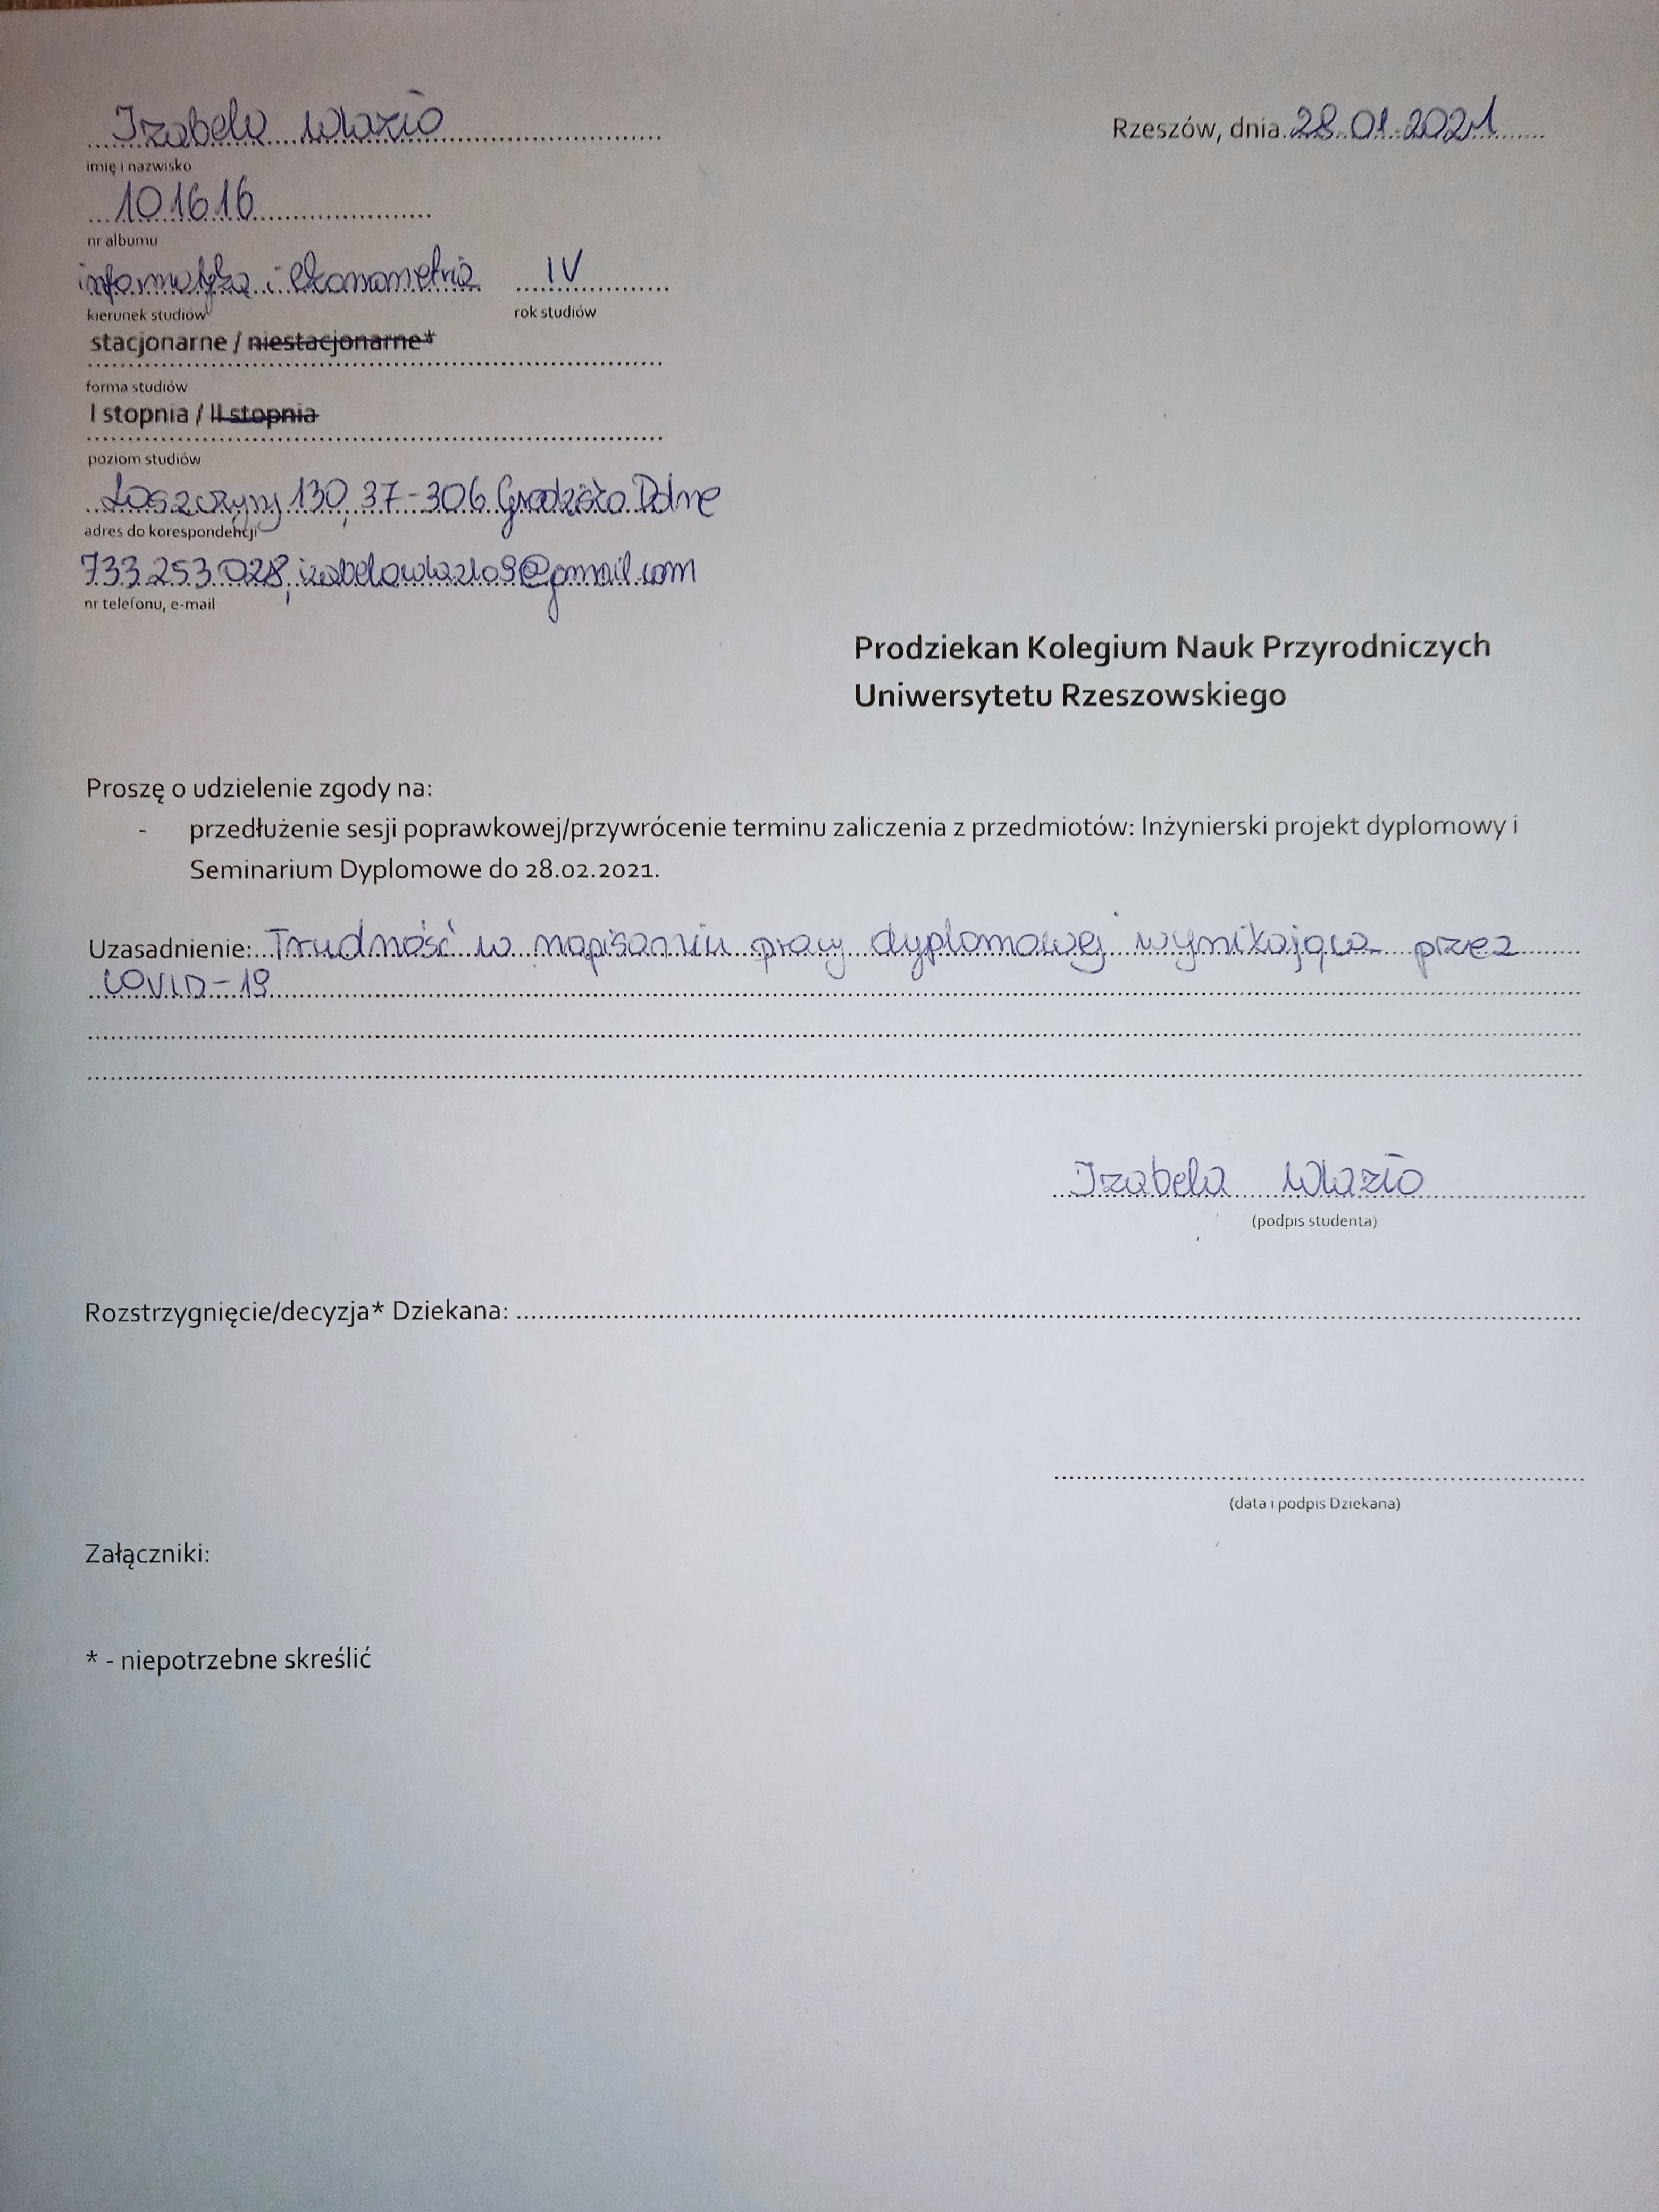 Izabela Wlazło
Rzeszów, dnia 28.01.2021
imię i nazwisko
101616
nr albumu
informatyka i ekonometria IV
kierunek studiów rok studiów
stacjonarne / niestacjonarne*
forma studiów
I stopnia / II stopnia
poziom studiów
Laszczyny 130, 37-306 Grodzisko Dolne
adres do korespondencji
733 253 028, izabelawlazlo9@gmail.com
nr telefonu, e-mail
Prodziekan Kolegium Nauk Przyrodniczych
Uniwersytetu Rzeszowskiego
Proszę o udzielenie zgody na:
- przedłużenie sesji poprawkowej/przywrócenie terminu zaliczenia z przedmiotów: Inżynierski projekt dyplomowy i
Seminarium Dyplomowe do 28.02.2021.
Uzasadnienie: Trudność w napisaniu pracy dyplomowej wynikająca przez
COVID-19
Izabela Wlazło
(podpis studenta)
Rozstrzygnięcie/decyzja* Dziekana:
(data i podpis Dziekana)
Załączniki:
* - niepotrzebne skreślić